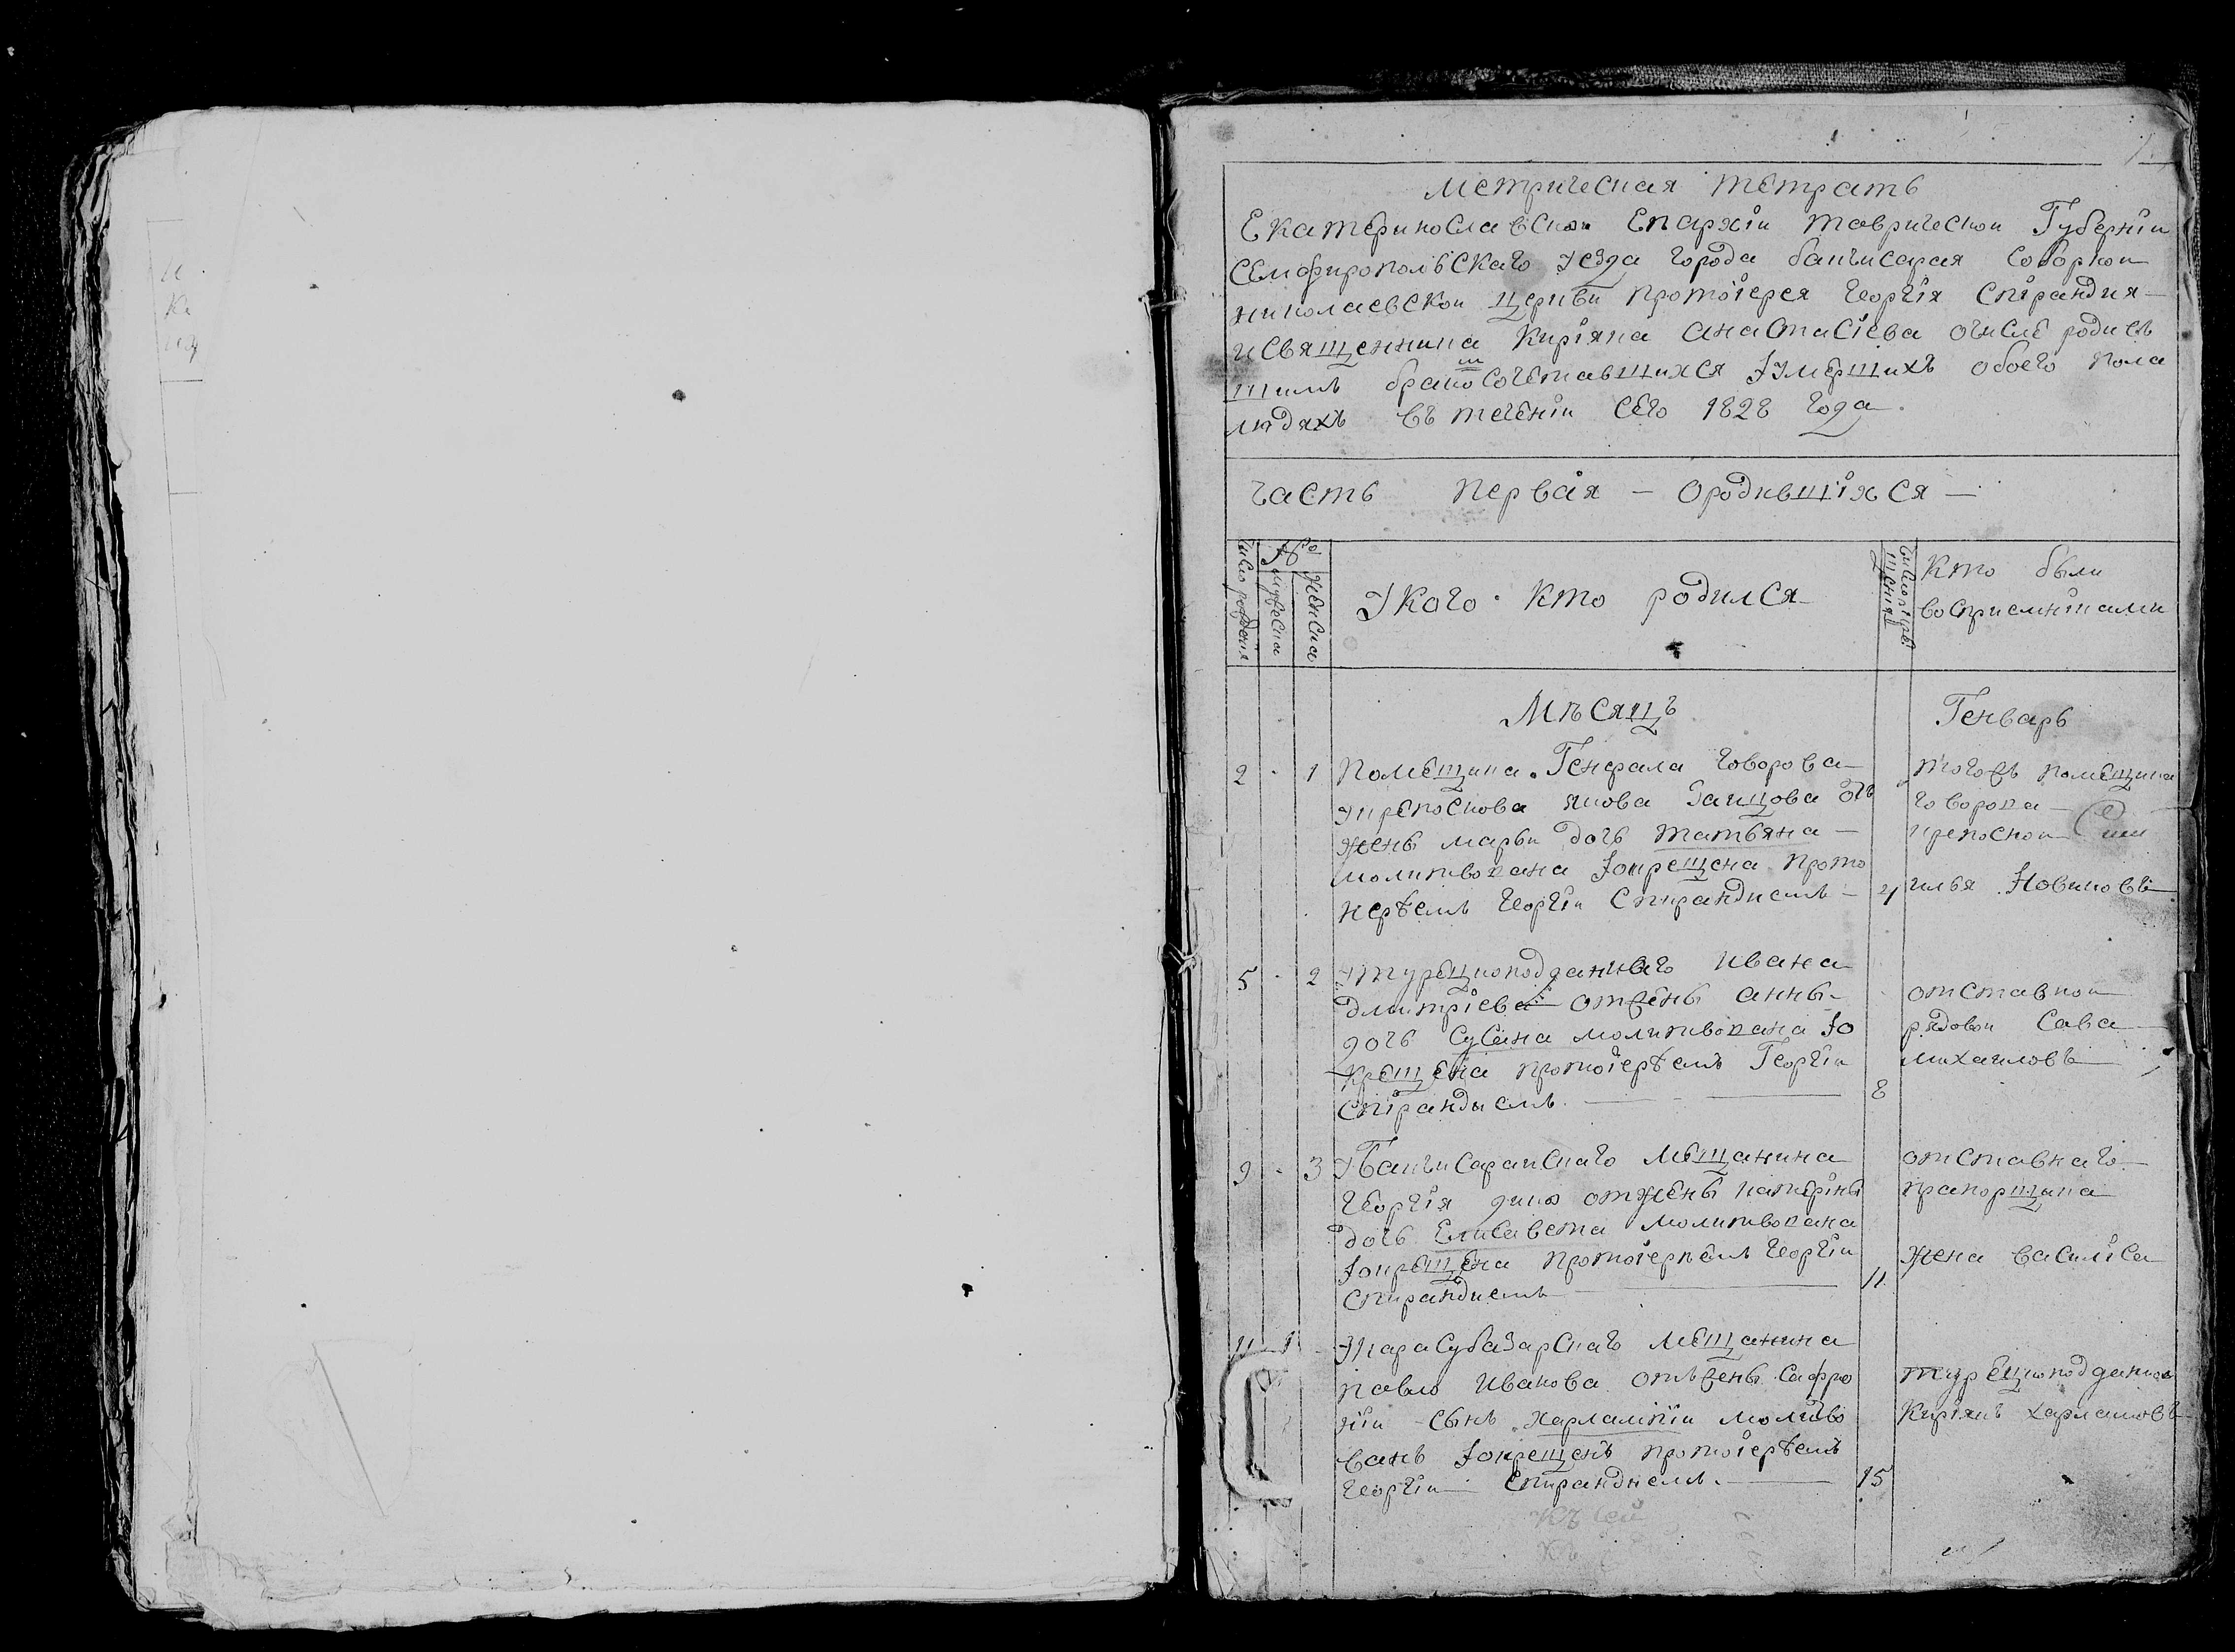 Метрическая тетрать
Екатеринославскои Епархіи таврическои Губерніи
Семфиропольскаго уезда города бакчисарая Соборнои
николаевскои церкви протоіерея Георгія Спірандия
и священника Киріяна Анастасіева очисле родив
шимъ бракосочетавшихся Iумершихъ обоего пола
людяхъ въ теченіи сего 1828 года.
часть первая – ородившіяхся –
Число рождения
№
мужеска
женска
Укого кто родился
Число крещения
Кто были
восприемніками
Мѣсяцъ
Генварь
2 - 1 Помещика Генерала Говорова
укрепоскова якова Заицова отъ
жены марьи дочь татьяна
молитвована Iокрещена прото
иерѣемъ Георгіи Спирандиемъ – 4
тогожъ помещика
говорова
крепоснои
илья Новиковъ
5 - 2 Утурецкоподданнаго Ивана
дмитріева отжены анны
дочь Сусана молитвована Iо
крещена протоіерѣемъ Георгіи
Спірандыемъ 8
отставнои
рядовои Сава
михаиловъ
9 - 3 Убакчисараискаго мещанина
Георгія отжены катеріны
дочь Елисавета молитвована
Iокрещена протоіерѣемъ Георгіи
Спирандиемъ 11
отставнаго
прапорщика
жена василіса
11 1 Укарасубазарскаго мещанина
павло Иванова отъжены Сафро
ніи сынъ харлампіи молитво
ванъ Iокрещенъ протоіерѣемъ
Георгіи Спирандиемъ. 15
турецкоподданнои
Киріякъ харламовъ